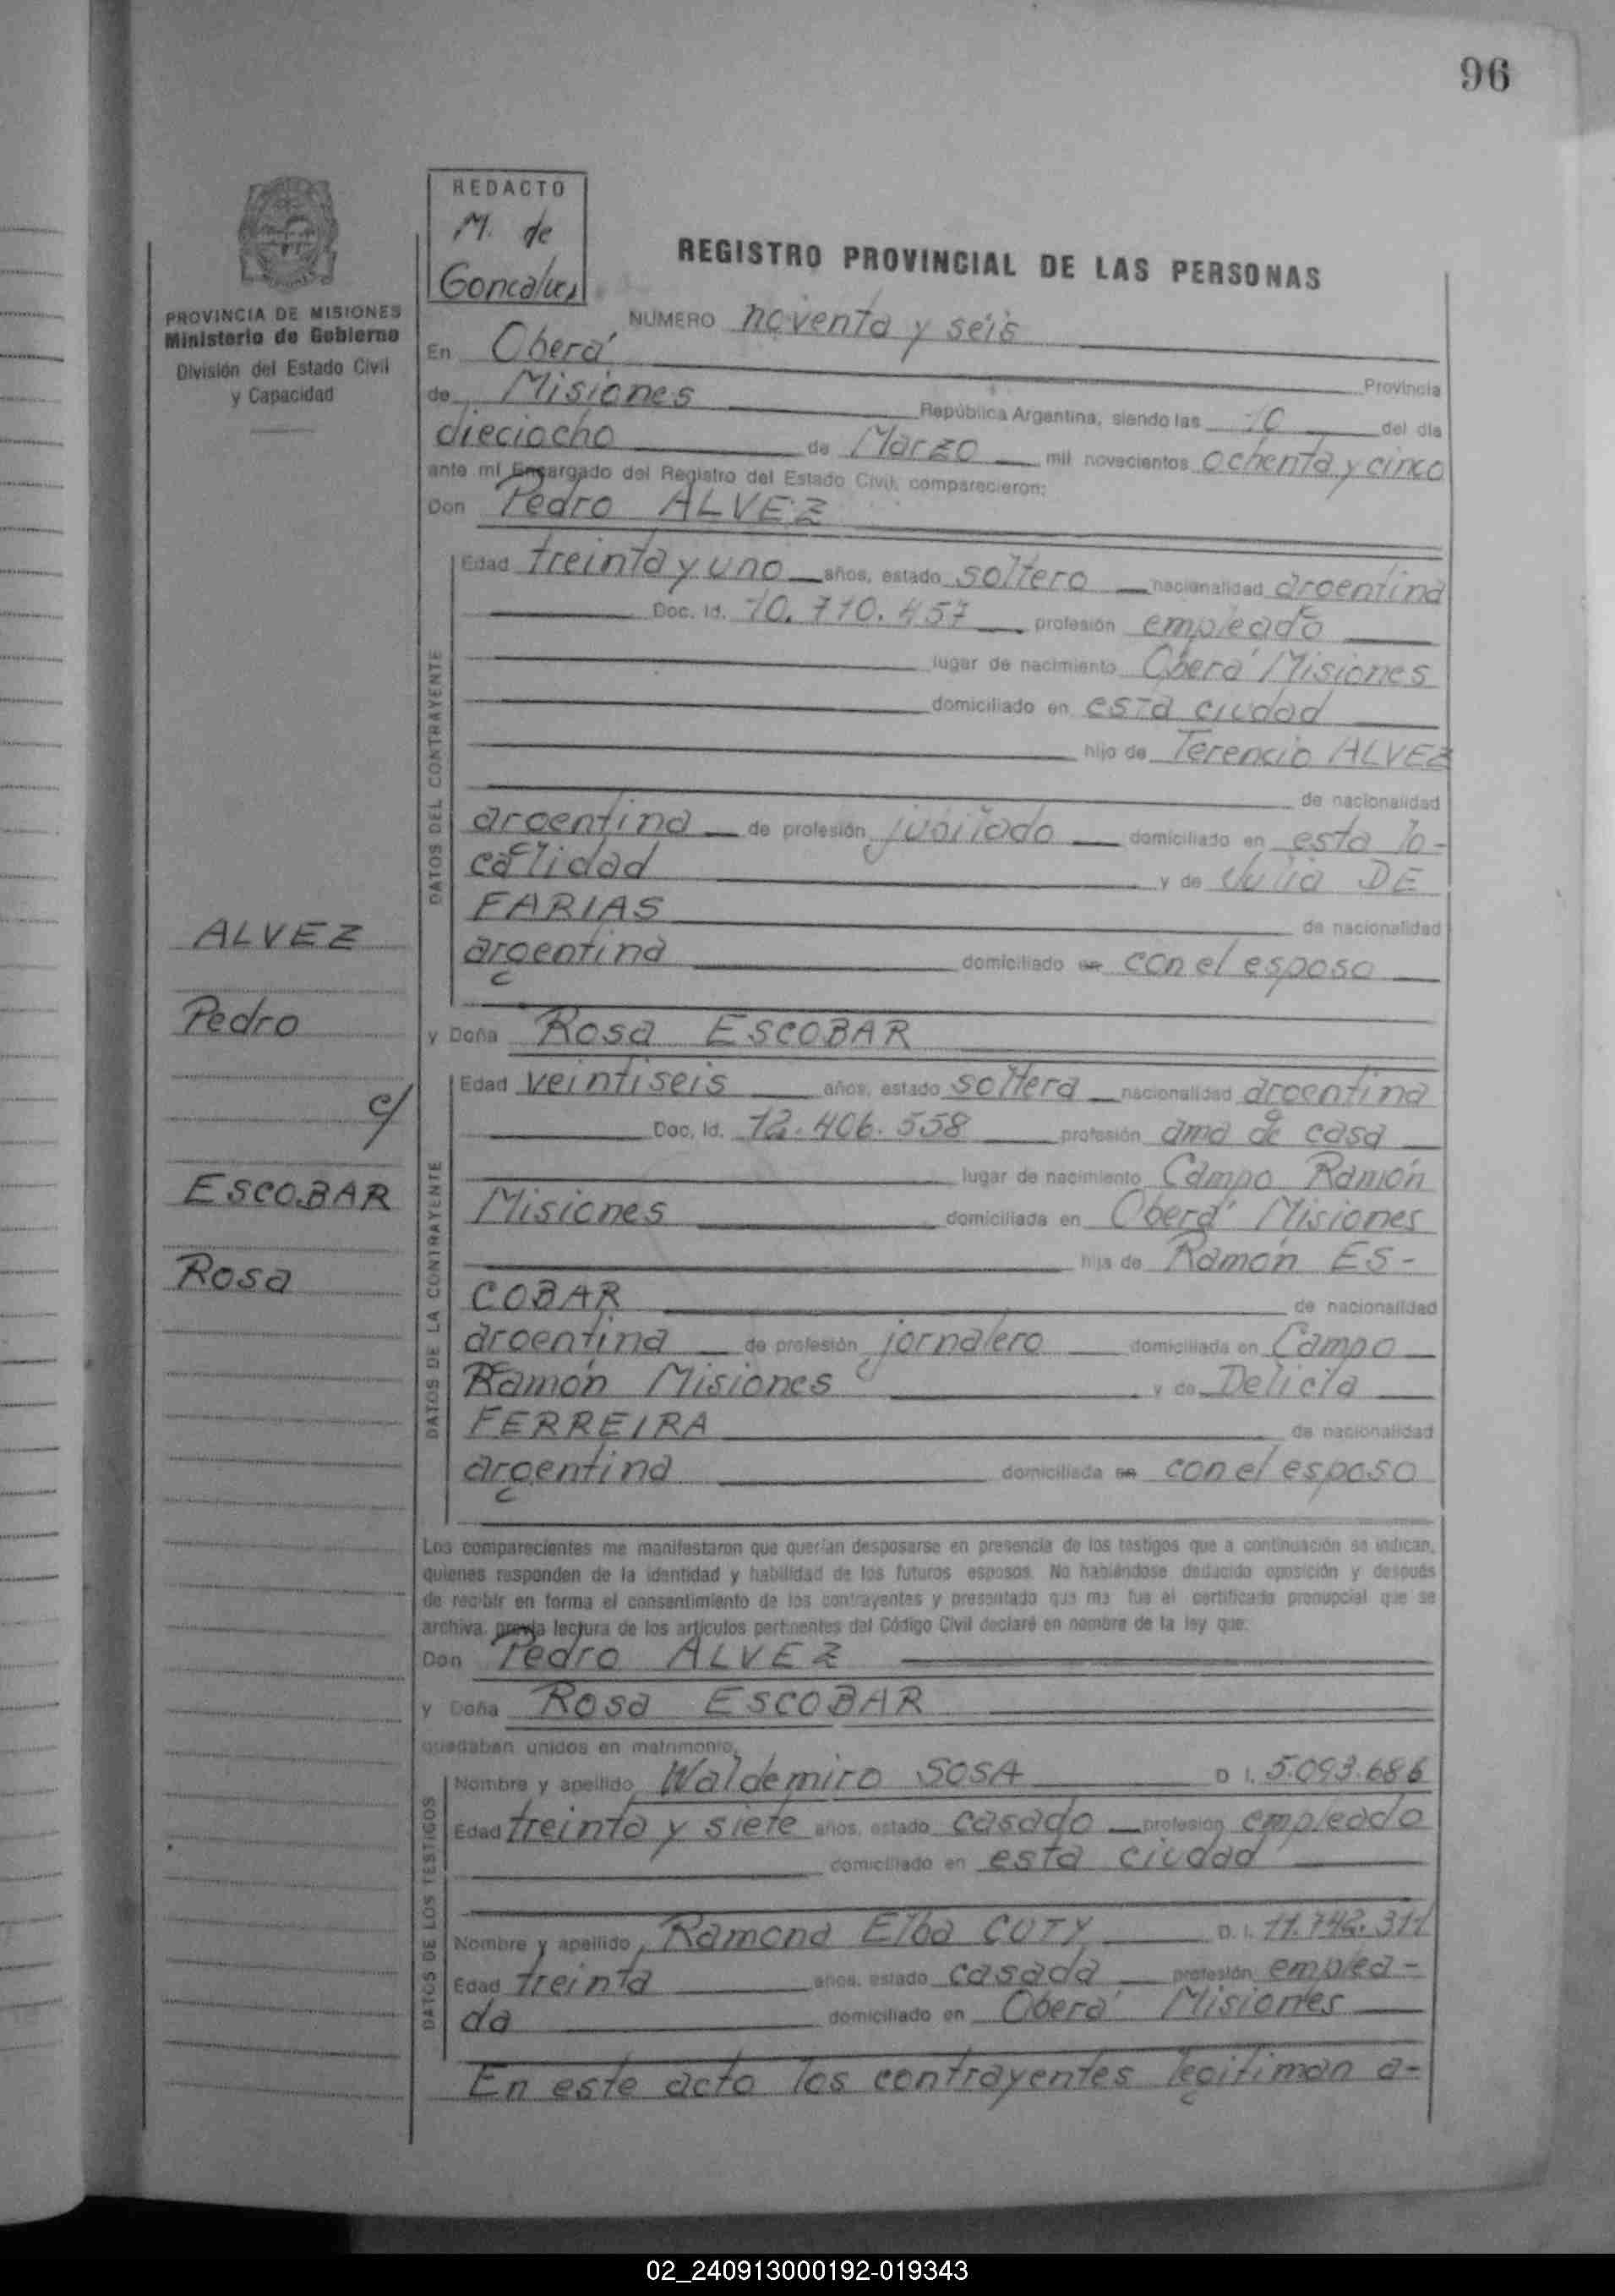 96
REDACTO
M. de
Goncalves
REGISTRO PROVINCIAL DE LAS PERSONAS
PROVINCIA DE MISIONES
Ministerio de Gobierno
División del Estado Civil
y Capacidad
NUMERO noventa y seis
En Oberá Provincia
de Misiones República Argentina, siendo las 10 del día
dieciocho de Marzo mil novecientos ochenta y cinco
ante mí Encargado del Registro del Estado Civil, comparecieron:
Don Pedro ALVEZ
DATOS DEL CONTRAYENTE
Edad treinta y uno años, estado soltero nacionalidad argentina
Doc. Id. 10.710.457 profesión empleado
lugar de nacimiento Oberá Misiones
domiciliado en esta ciudad
hijo de Terencio ALVEZ
de nacionalidad
argentina de profesión jubilado domiciliado en esta lo-
calidad y de Julia DE
FARIAS de nacionalidad
argentina domiciliado en con el esposo
ALVEZ
Pedro
c/
ESCOBAR
Rosa
y Doña Rosa ESCOBAR
DATOS DE LA CONTRAYENTE
Edad veintiseis años, estado soltera nacionalidad argentina
Doc. Id. 12.406.558 profesión ama de casa
lugar de nacimiento Campo Ramón
Misiones domiciliada en Oberá Misiones
hija de Ramón ES-
COBAR de nacionalidad
argentina de profesión jornalero domiciliada en Campo
Ramón Misiones y de Delicia
FERREIRA de nacionalidad
argentina domiciliada en con el esposo
Los comparecientes me manifestaron que querían desposarse en presencia de los testigos que a continuación se indican,
quienes responden de la identidad y habilidad de los futuros esposos. No habiéndose deducido oposición y después
de recibir en forma el consentimiento de los contrayentes y presentado que me fue el certificado prenupcial que se
archiva, previa lectura de los artículos pertinentes del Código Civil declaré en nombre de la ley que:
Don Pedro ALVEZ
y Doña Rosa ESCOBAR
quedaban unidos en matrimonio.
DATOS DE LOS TESTIGOS
Nombre y apellido Waldemiro SOSA D I. 5.093.686
Edad treinta y siete años, estado casado profesión empleado
domiciliado en esta ciudad
Nombre y apellido Ramona Elba CUTY D. I. 11.742.311
Edad treinta años, estado casada profesión emplea-
da domiciliado en Oberá Misiones
En este acto los contrayentes legitiman a-
02_240913000192-019343